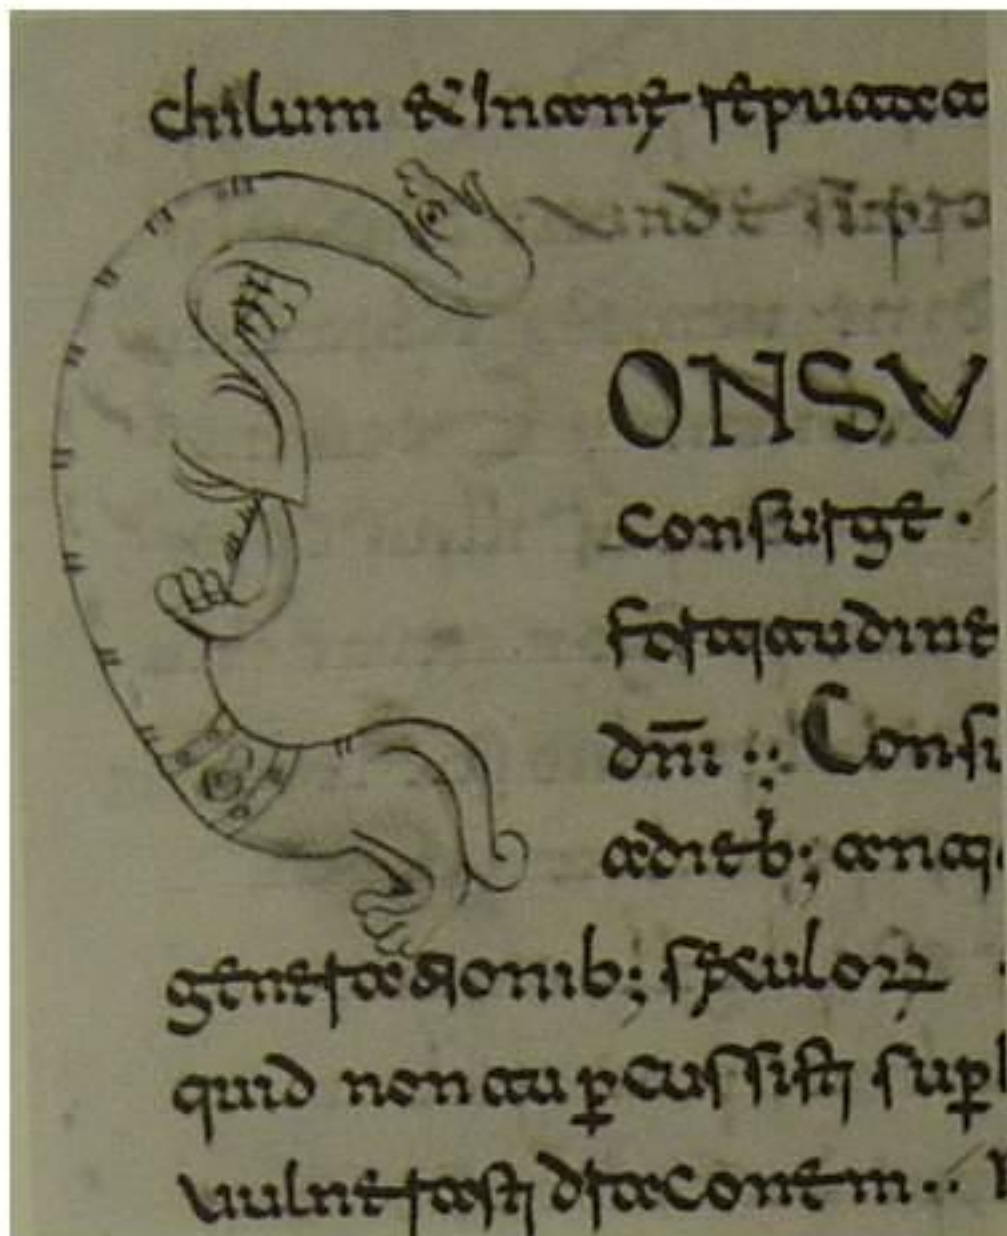 chilum & Inanę reputata
ONSV
consurge ·
fortitudine
dñi ·: Consi
adieb; anti
generationib; seculoꝝ
quid non tu ꝑcussisti suꝑb
vulnerasti draconem ··